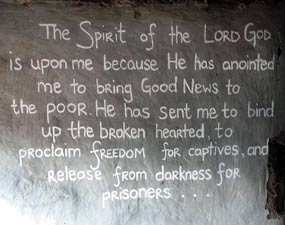 The Spirit of the LORD GOD
is upon me because He has anointed
me to bring Good News to
the poor. He has sent me to bind
up the broken hearted, to
proclaim freedom for captives, and
release from darkness for
prisoners . . .